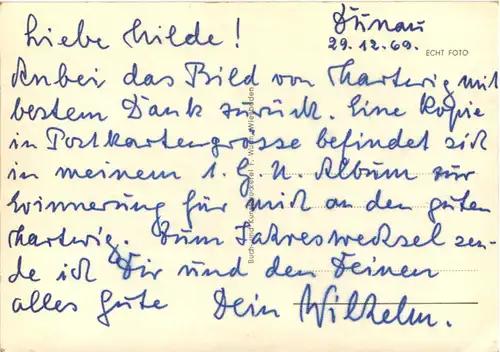 Liebe Hilde!
29.12.69.
ECHT FOTO
Anbei das Bild von Hartwig mit
bestem Dank zurück. Eine Kopie
in Postkartengrosse befindet sich
in meinem 1. G. U. Album zur
Erinnerung für mich an den guten
Hartwig. Zum Jahreswechsel sen-
de ich Dir und den Deinen
alles Gute Dein Wilhelm.